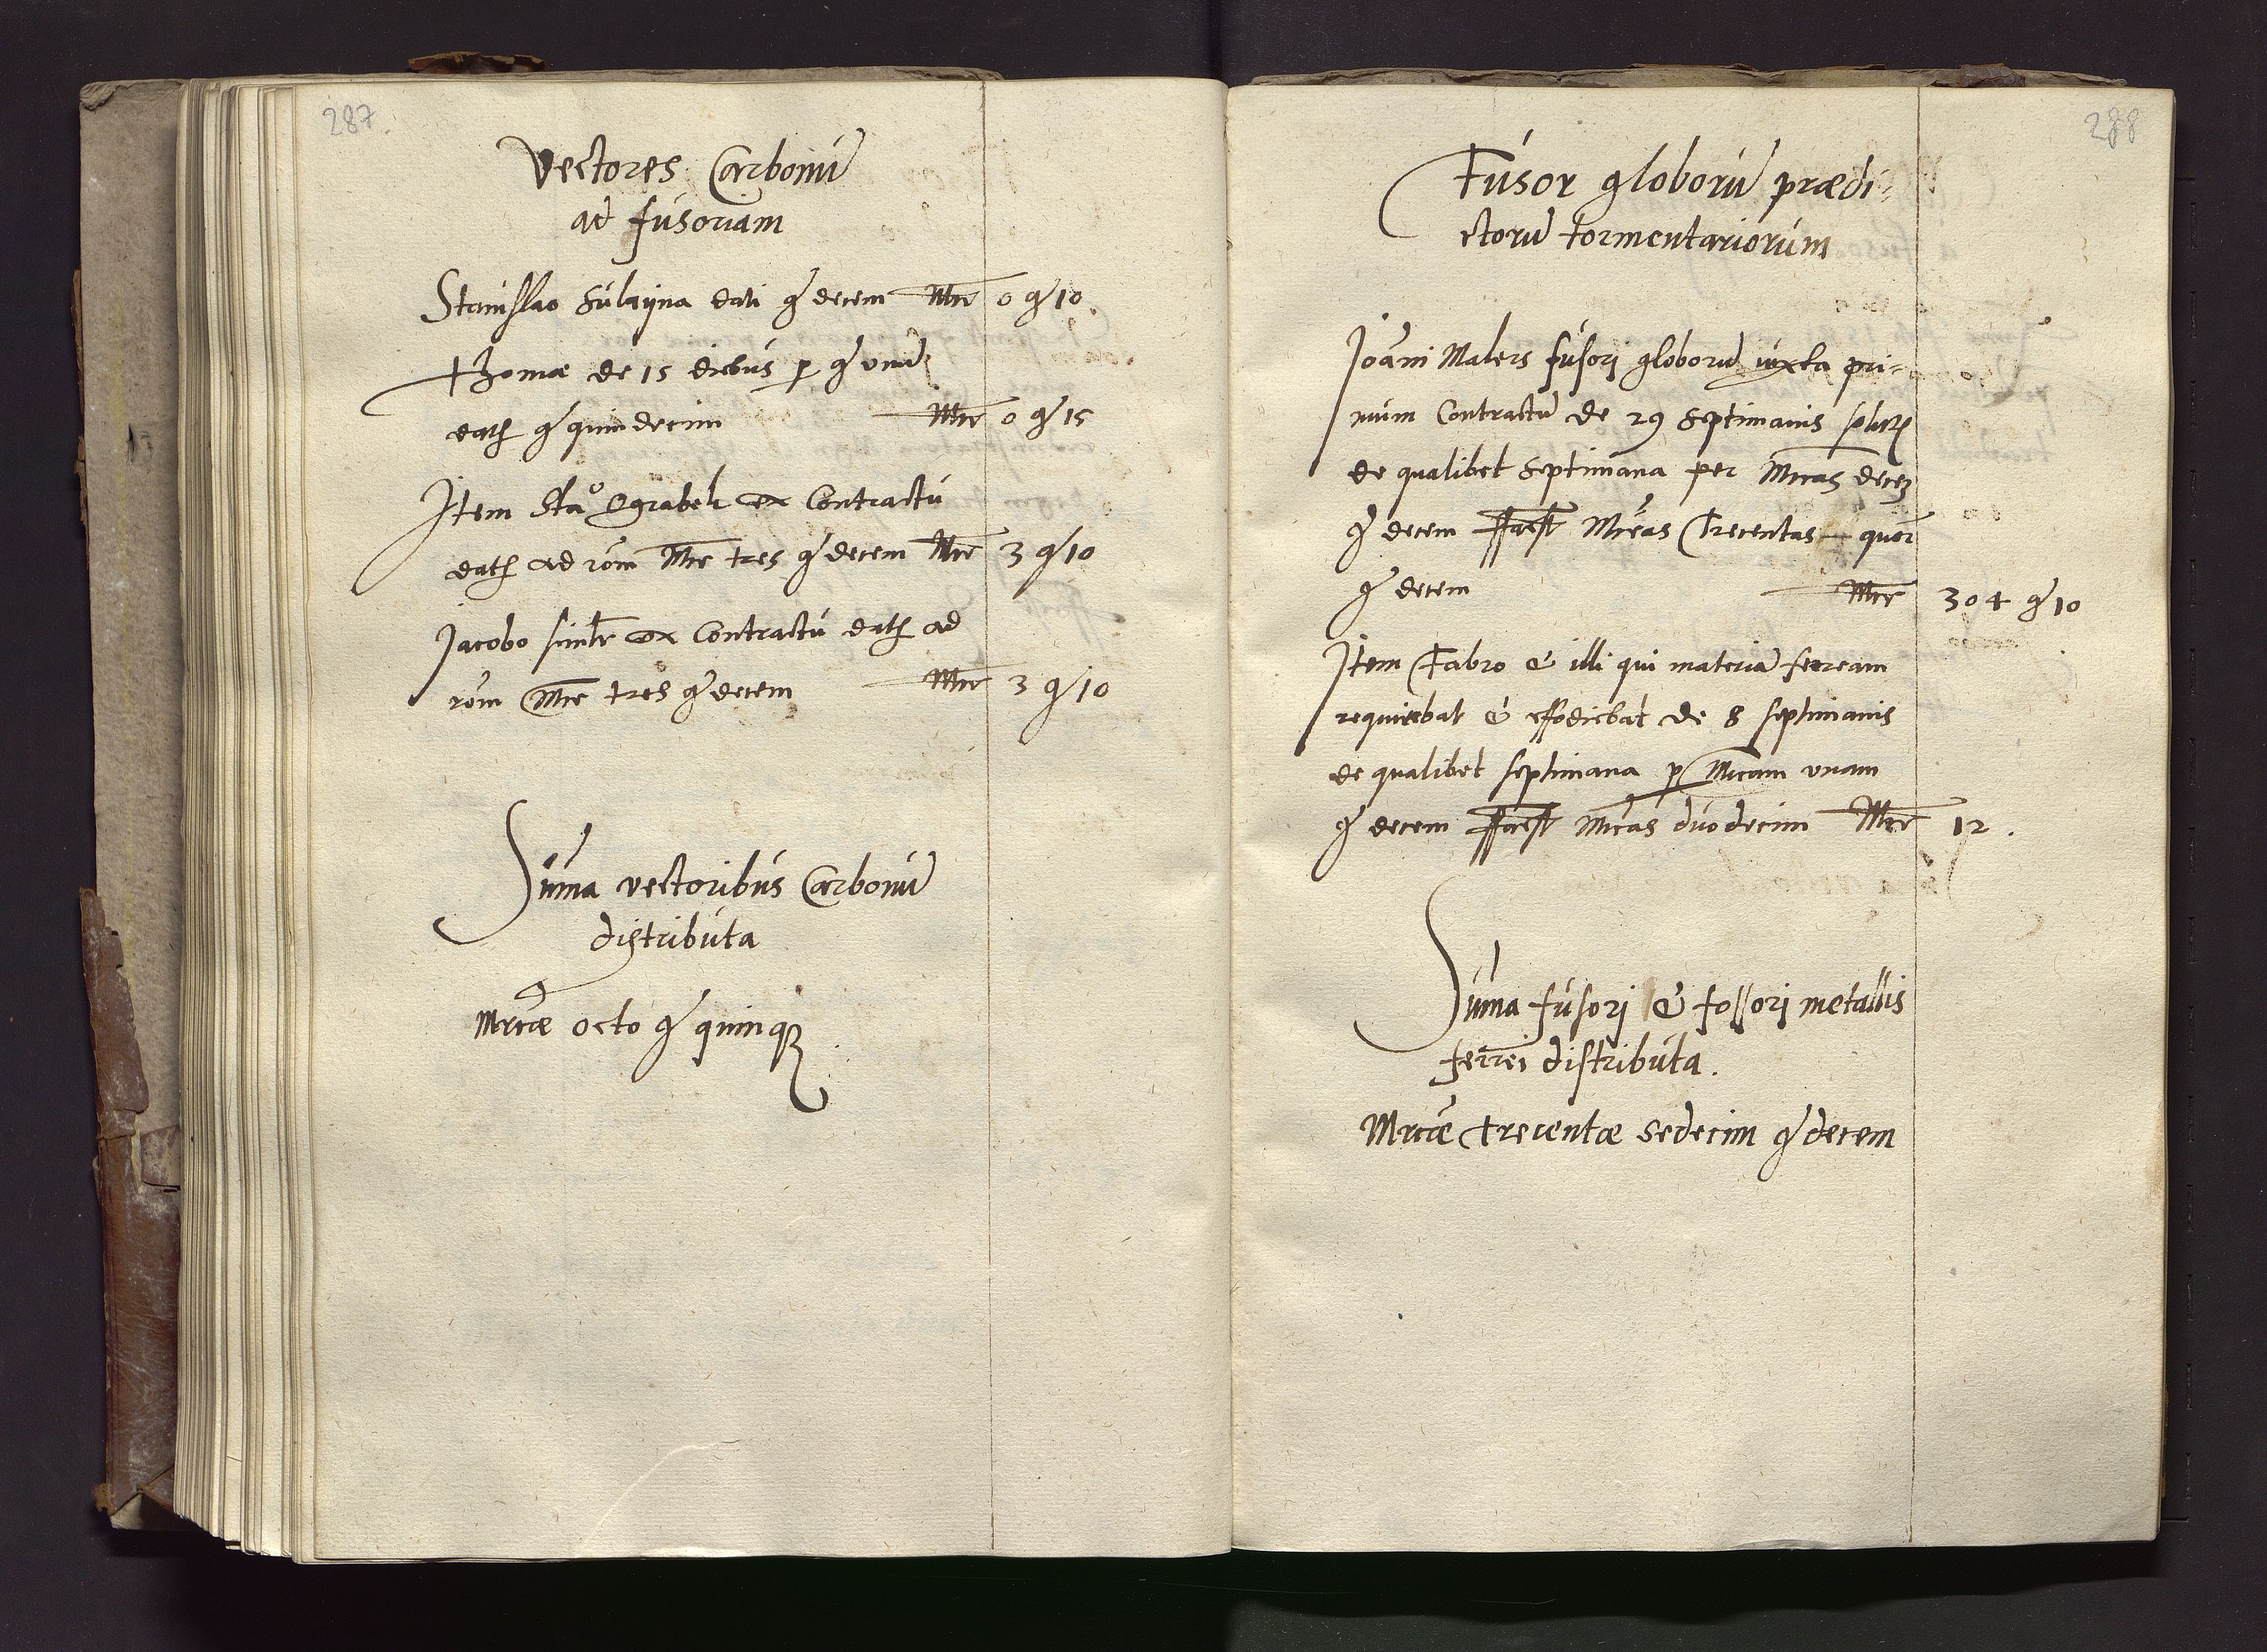 287.
Vectores Carbonũ
ad fusoriam
Stanislao Sulayna dati g decem Mre 0 g 10.
Thomæ de 15 diebus p g unũ
dati g quindecim Mre 0 g 15
Item Sta° Ograbek ex Contractu
dati ad rõm Mre tres g decem Mre 3 g 10
Jacobo simlr ex Contractu dati ad
rõm Mre tres g decem Mre 3 g 10
Suma vectoribus Carbonũ
distributa
Mrcæ octo g quinq3
288
Fusor globorũ prædi-
ctorũ tormentariorum
Joãni Malers fusori globorũ iuxta pri-
mum Contractũ de 29 Septimanis
de qualibet Septimana per Mrcas dece3
g decem facit Mrcas Trecentas quor
g decem Mre 304 g 10
Item Fabro & illi qui materiã ferream
requirebat & effodiebat de 8 septimanis
de qualibet septimana p Mrcam unam
g decem facit Mrcas duodecim Mre 12.
Suma fusori & fossori metallis
ferrei distributa.
Mrcæ trecentæ sedecim g decem